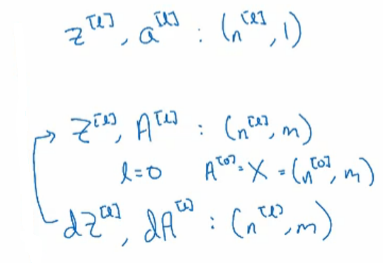 z^[l], a^[l] : (n^[l], 1)
Z^[l], A^[l] : (n^[l], m)
l=0 A^[0] = X = (n^[0], m)
dZ^[l], dA^[l] : (n^[l], m)